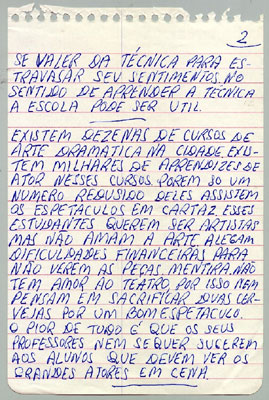 2
SE VALER DA TÉCNICA PARA ES-
TRAVASAR SEU SENTIMENTOS. NO
SENTIDO DE APRENDER A TÉCNICA
A ESCOLA PODE SER UTIL.
EXISTEM DEZENAS DE CURSOS DE
ARTE DRAMATICA NA CIDADE. EXIS-
TEM MILHARES DE APRENDIZES DE
ATOR NESSES CURSOS. POREM SO UM
NUMERO REDUSIDO DELES ASSISTEM
OS ESPETACULOS EM CARTAZ. ESSES
ESTUDANTES QUEREM SER ARTISTAS
MAS NÃO AMAM A ARTE. ALEGAM
DIFICULDADES FINANCEIRAS PARA
NÃO VEREM AS PEÇAS. MENTIRA. NÃO
TEM AMOR AO TEATRO. POR ISSO NEM
PENSAM EM SACRIFICAR DUAS CER-
VEJAS POR UM BOM ESPETACULO.
O PIOR DE TUDO É QUE OS SEUS
PROFESSORES NEM SEQUER SUGEREM
AOS ALUNOS QUE DEVEM VER OS
GRANDES ATORES EM CENA.